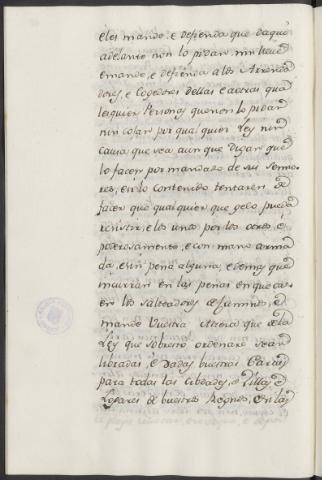 eles mande: e defienda que daqui
adelante non lo pidan, nin lleven
e mande, e defienda a los Arrenda
dores, e Cogedores dellas e a otras qua
lesquier Personas que non lo pidan
nin cojan por qual quier Ley nin
causa que sea, aun que digan que
lo facen por mandado de sus Senno
res, e si lo contenido tentaren de
facer que qualquier que gelo pueda
resistir, e los unos, por los otros, e
poderosamente, e con mano arma
da, e sin pena alguna, e demas que
incurran en las penas en que ca
en los salteadores de caminos, e
mande Vuestra Alteza que de la
Ley que sobresto ordenare sean
libradas, e dadas vuestras Cartas
para todas las Cibdades, e Villas e
Logares de vuestros Regnos, en las